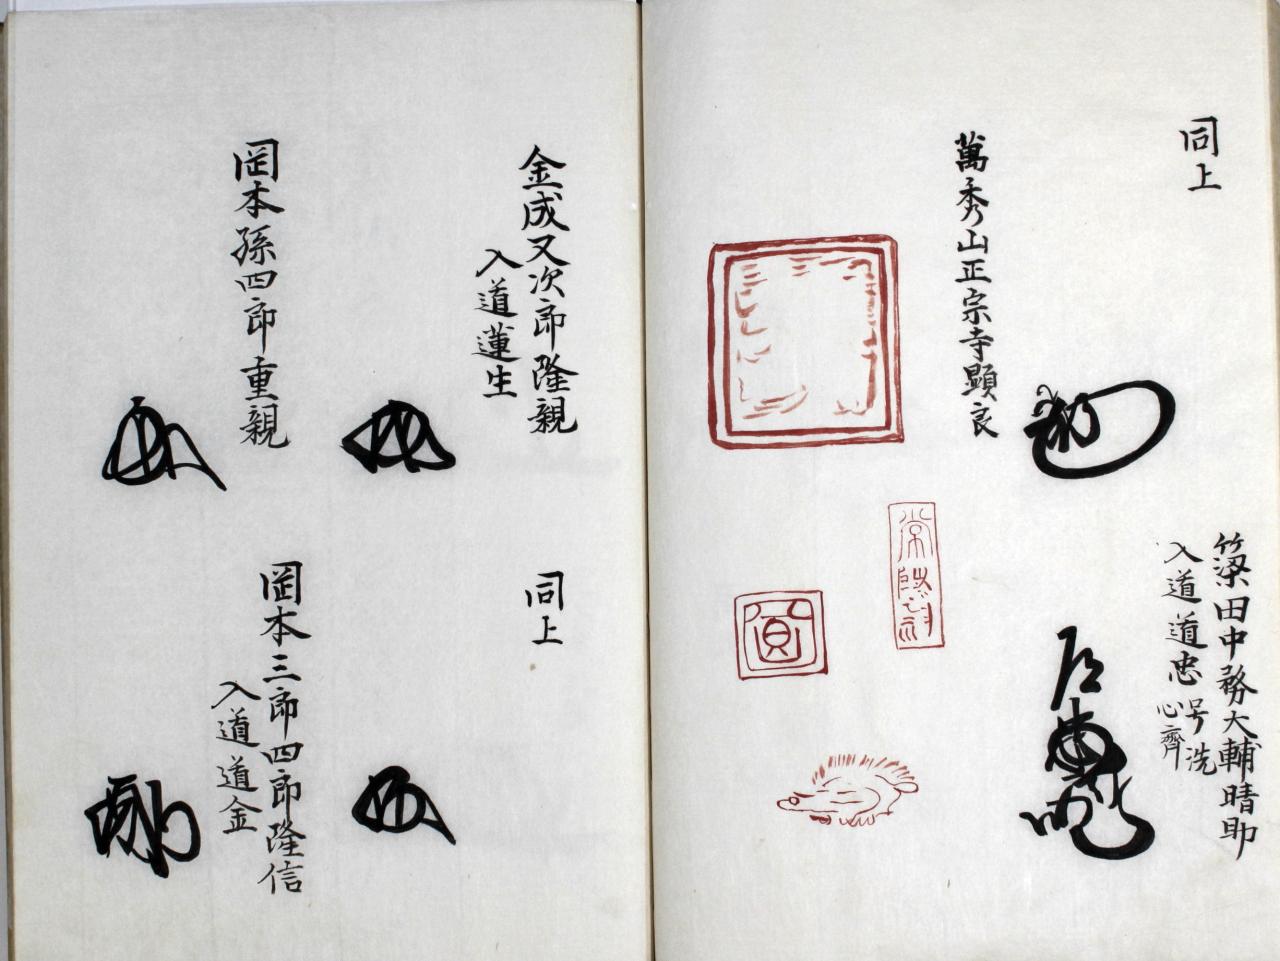 同上
簗田中務大輔晴助
入道道忠号洗
心齊
萬秀山正宗寺顕良
金成又次郎隆親
入道蓮生
同上
岡本孫四郎重親
岡本三郎四郎隆信
入道道金